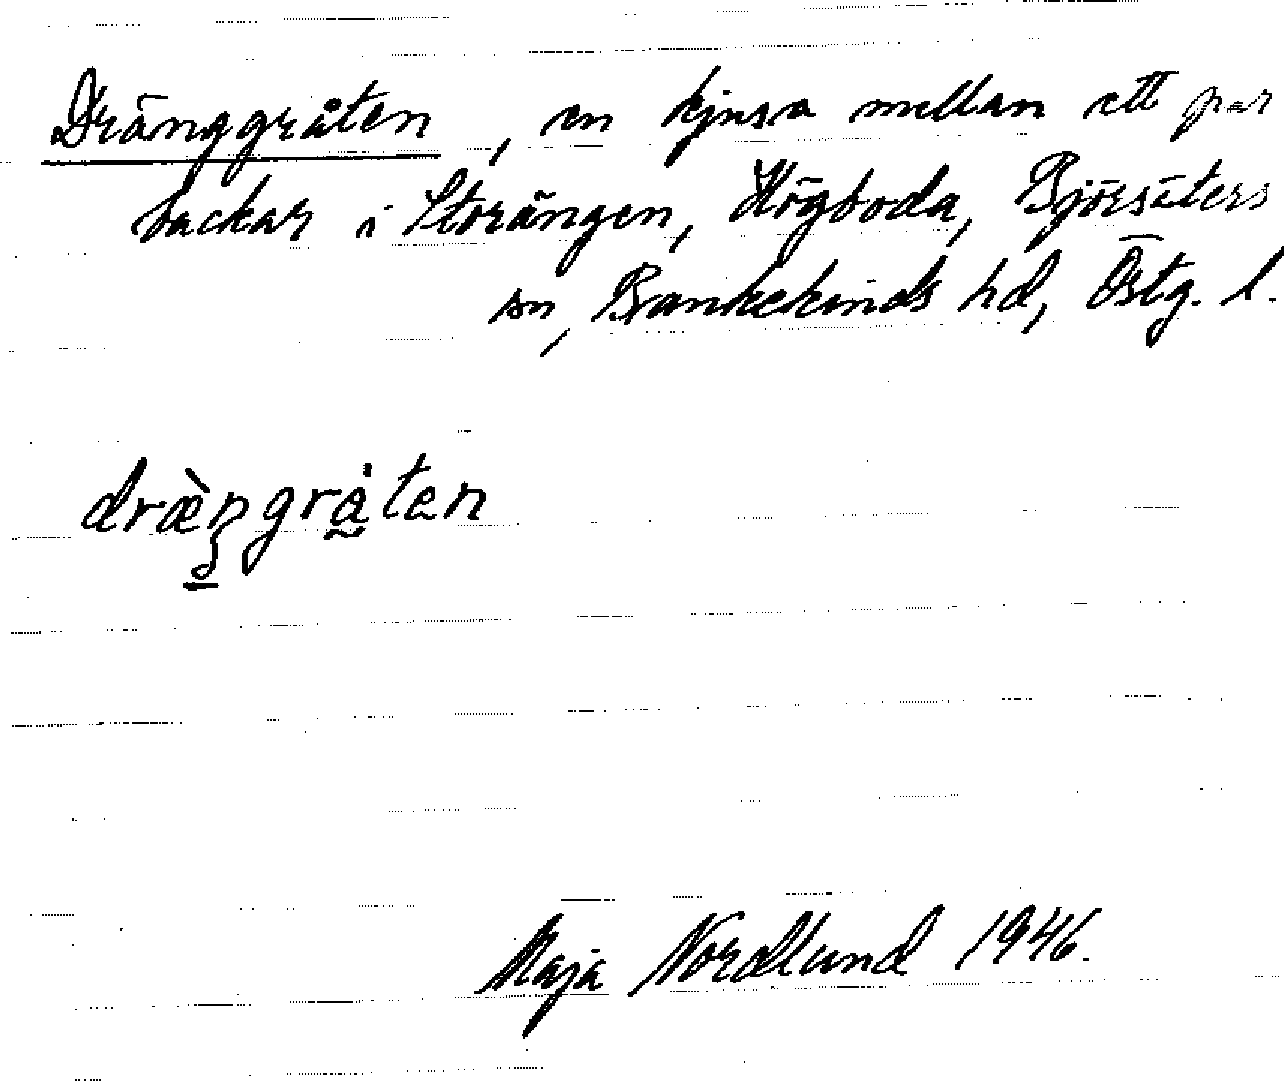 Dränggråten, en kjusa mellan ett par
backar i Storängen, Högboda, Björsäters
sn, Bankekinds hd, Östg. l.
dræ̀ŋgråten
Maja Nordlund 1946.